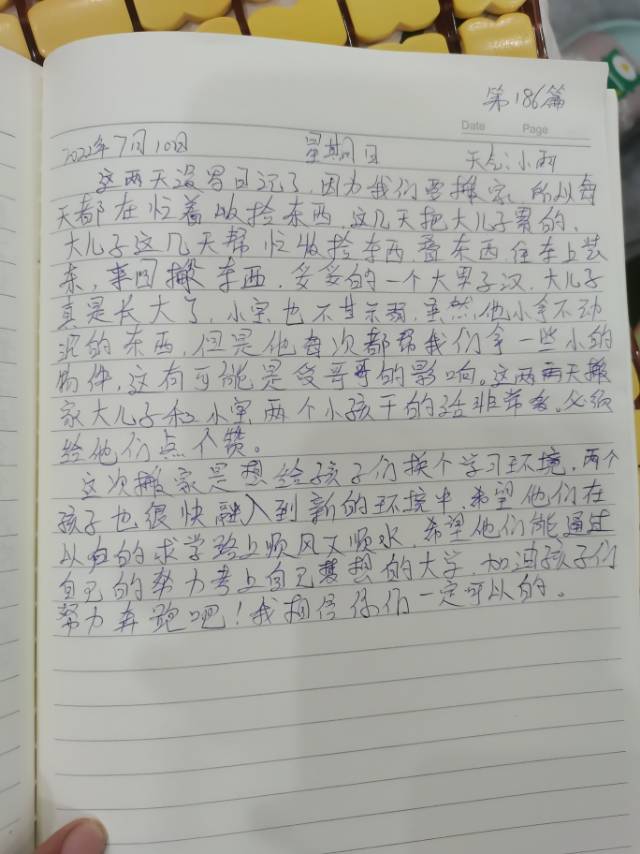 第186篇
Date Page
2022年7月10日 星期日 天气:小雨
这两天没写日记了,因为我们要搬家,所以每
天都在忙着收拾东西,这几天把大儿子累的,
大儿子这几天帮忙收拾东西,叠东西,往车上装
东,来回搬东西,妥妥的一个大男子汉,大儿子
真是长大了,小宇也不甘示弱,虽然他小拿不动
沉的东西,但是他每次都帮我们拿一些小的
物件,这有可能是受哥哥的影响。这两天搬
家大儿子和小宇两个小孩干的活非常多。必须
给他们点个赞。
这次搬家是想给孩子们换个学习环境,两个
孩子也很快融入到新的环境中,希望他们在
以后的求学路上顺风又顺水,希望他们能通过
自己的努力考上自己梦想的大学,加油孩子们
努力奔跑吧!我相信你们一定可以的。